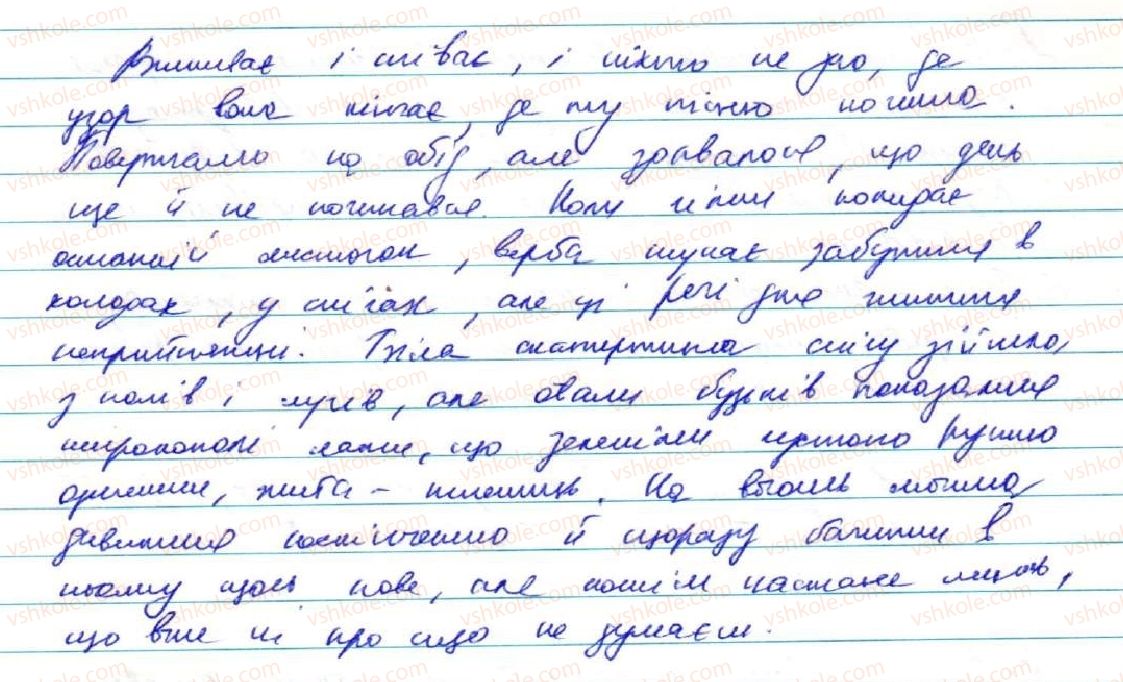 Вишиває і співає, і ніхто не зна, де
узор вона кінчає, де ту пісню почина.
Повертало на обід, але здавалося, що день
ще й не починався. Коли гілки покидає
останній листочок, верба шукає забуття в
холодах, у снігах, але ці речі дуже
неприйнятні. Біла скатертина снігу зійшла
з полів і лугів, але овали будяків показалися
широкополі лани, що зеленіли густою руниою
озимини, жита-пшениць. На вогонь можна
дивитися постійно й щоразу бачити в
ньому щось нове, але потім настане мить,
що вже ні про що не думаєш.
vshkole.com